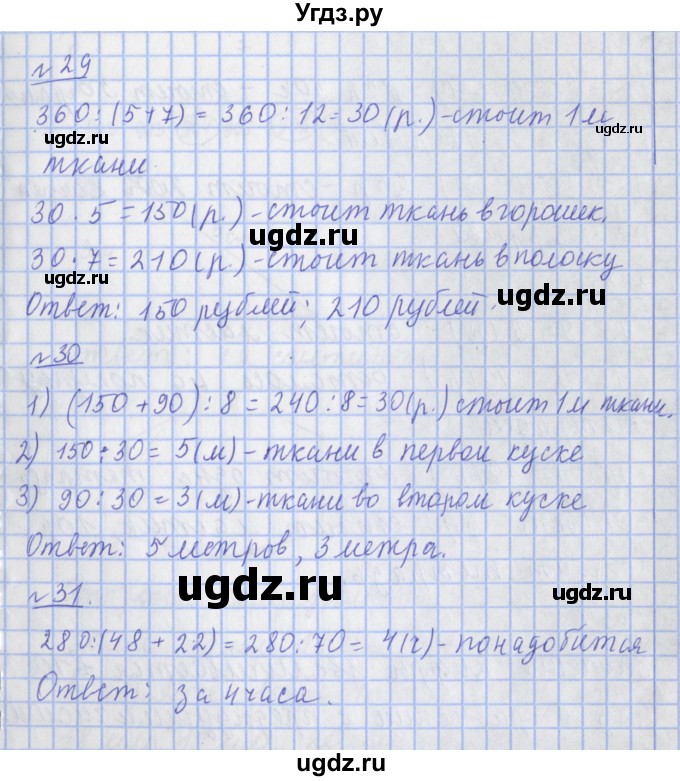 Угдз.ру
№ 29
360 : (5+7) = 360 : 12 = 30 (р.) - стоит 1 м
ugdz.ru ugdz.ru
ткани.
30 · 5 = 150 (р.) - стоит ткань в горошек.
ugdz.ru
30 · 7 = 210 (р.) - стоит ткань в полоску
Ответ: 150 рублей; 210 рублей.
ugdz.ru
№ 30
1) (150 + 90) : 8 = 240 : 8 = 30 (р.) стоит 1 м ткани.
2) 150 : 30 = 5 (м) - ткани в первом куске
3) 90 : 30 = 3 (м) - ткани во втором куске
Ответ: 5 метров, 3 метра.
ugdz.ru
№ 31.
280 : (48 + 22) = 280 : 70 = 4 (ч) - понадобится
Ответ: за 4 часа.
ugdz.ru ugdz.ru